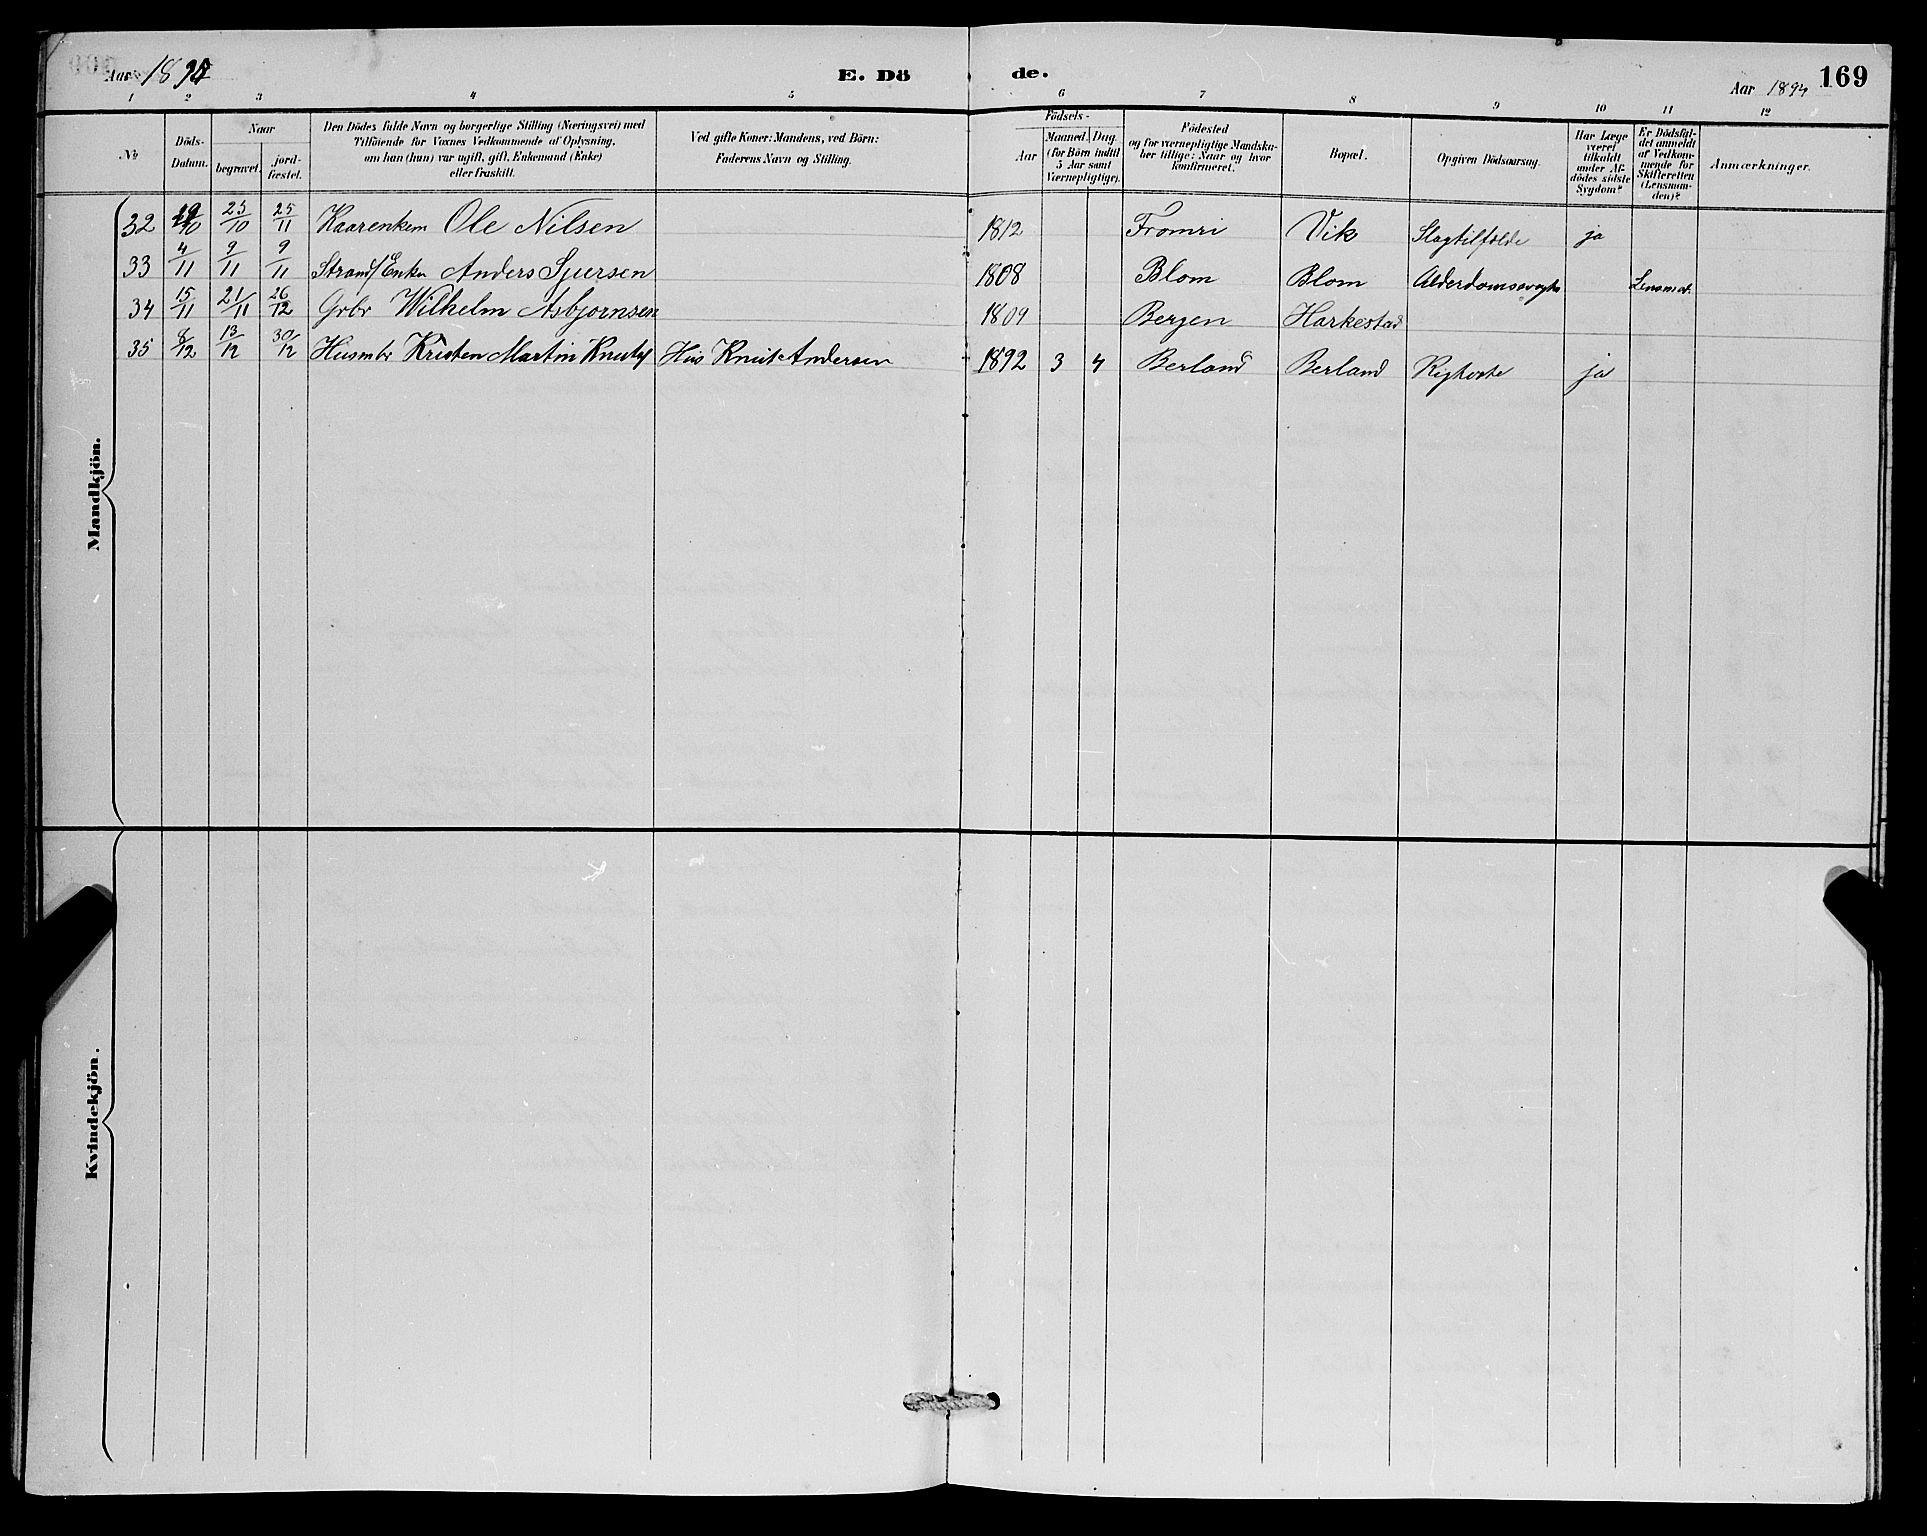 Aar 1894
E. Dö de.
Aar 1894
169
1 2 3 4 5 6 7 8 9 10 11 12
No
Döds-Datum.
Naar
begravet.
jord-fæstet.
Den Dödes fulde Navn og borgerlige Stilling (Næringsvei) med
Tilföiende for Voxnes Vedkommende af Oplysning,
om han (hun) var ugift, gift, Enkemand (Enke)
eller fraskilt.
Ved gifte Koner: Mandens, ved Börn:
Faderens Navn og Stilling.
Födsels-
Aar
Maaned. Dag.
(for Börn indtil
5 Aar samt
Værnepligtige).
Födested
og for værnepligtige Mandska-
ber tillige: Naar og hvor
konfirmeret.
Bopæl.
Opgiven Dödsaarsag.
Har Læge
været
tilkaldt
under Af-
dödes sidste
Sygdom?
Er Dödsfal-
det anmeldt
af Vedkom-
mende for
Skifteretten
(Lensman-
den)?
Anmærkninger.
Mandkjön.
32 19/10 25/10 25/11 Kaarenkem Ole Nilsen 1812 Fromri Vik Slagtilfælde ja
33 4/11 9/11 9/11 Strands/Enkem Anders Sjursen 1808 Blom Blom Alderdomssvaghe Lensm.
34 15/11 21/11 26/12 Gbr Wilhelm Asbjørnsen 1809 Bergen Harkestad
35 8/12 13/12 30/12 Husmbr Kristen Martin Knuts Hus Knut Andersen 1892 3 4 Berland Berland Kighoste ja
Kvindekjön.